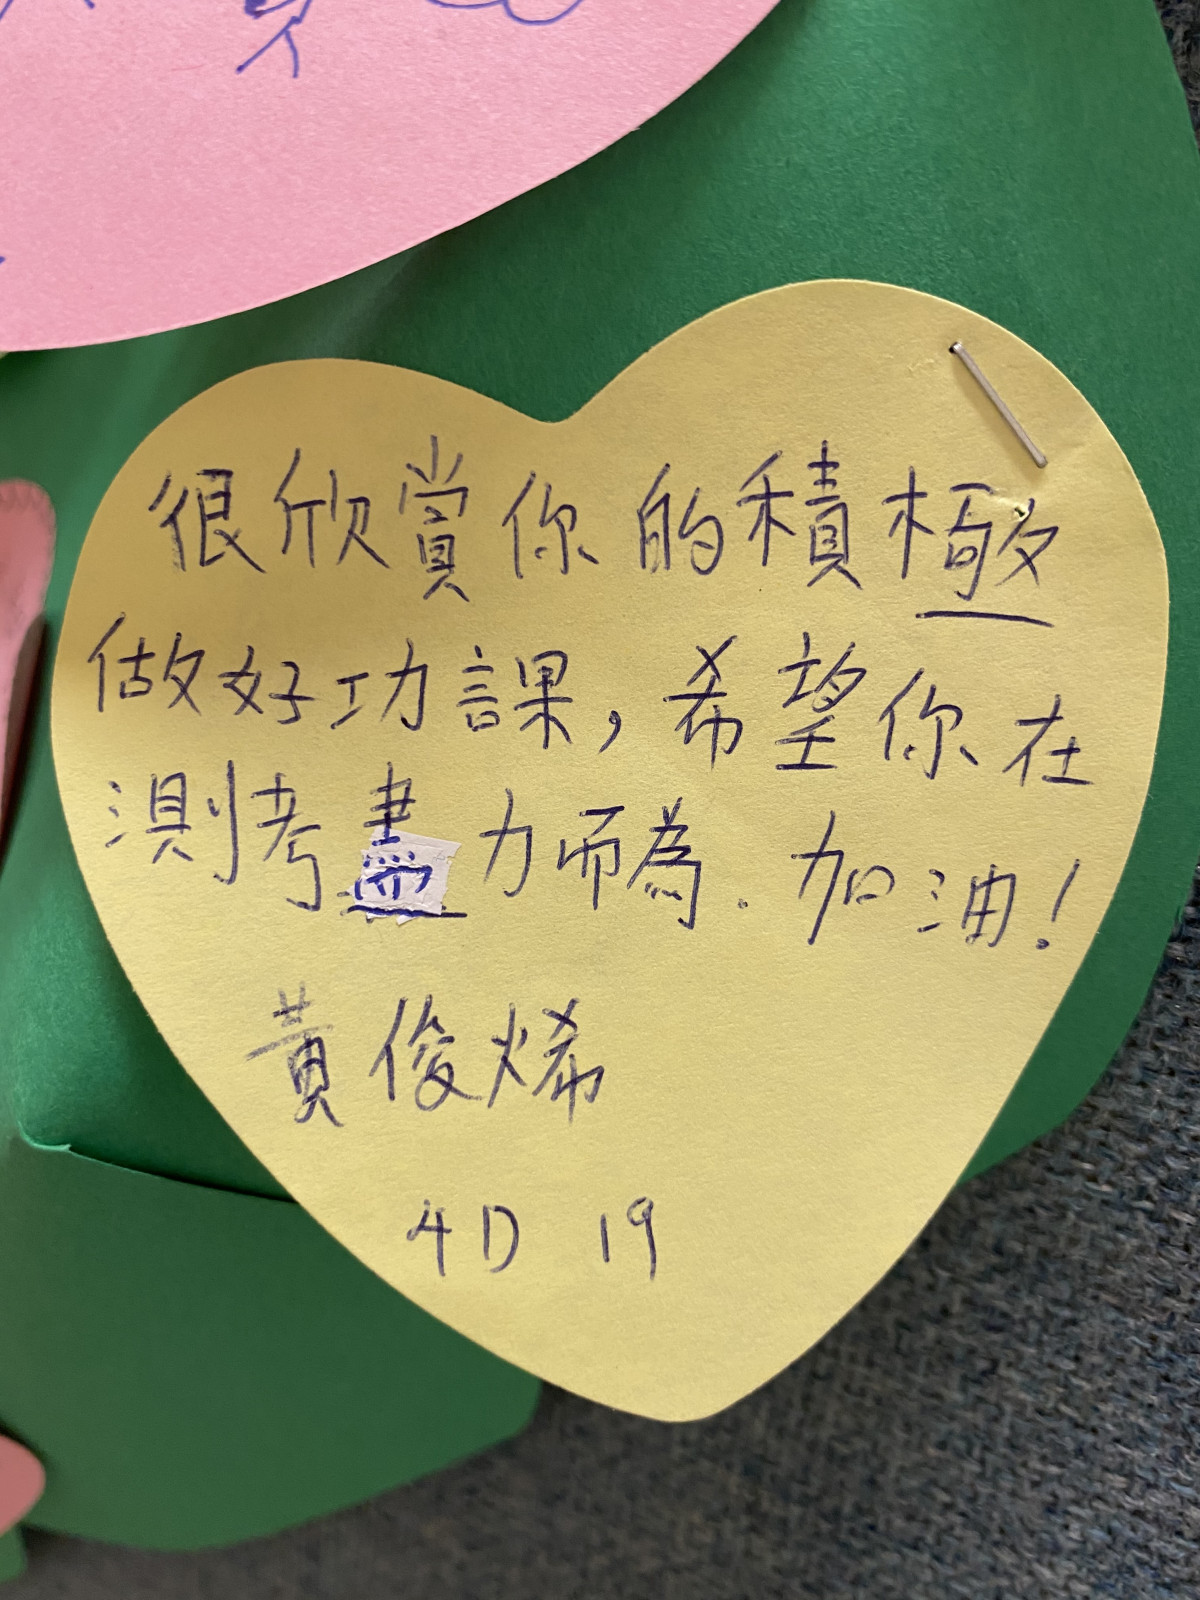 很欣賞你的積極
做好功課,希望你在
測考盡力而為.加油!
黃俊烯
4D 19